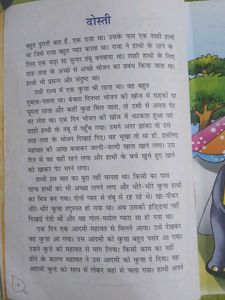 दोस्ती
बहुत पुरानी बात है. एक राजा था। उसके पास एक शाही हाथी
था जिसे राजा बहुत प्यार करता था। राजा ने हाथी के रहने के
लिए एक बड़ा सा सुन्दर तंबू बनवाया था। शाही हाथी के लिए
तरह-तरह के अच्छे से अच्छे भोजन का प्रबंध किया जाता था।
हाथी भी प्रसन्न और संतुष्ट था।
उसी राज्य में एक कुत्ता भी रहता था। वह बहुत
दुबला-पतला था। बेचारा दिनभर भोजन की खोज में सड़कों पर
घूमता रहता और कहीं कुछ मिल जाता, तो उसी से अपना पेट
भर लेता था। एक दिन भोजन की खोज में भटकता हुआ वह
शाही हाथी के तंबू में पहुँच गया। उसने अंदर झांका तो उसे
तरह-तरह के भोजन दिखाई दिए। वह भूखा तो था ही, इसलिए
महावत की आंख बचाकर जल्दी-जल्दी खाना खाने लगा। उस
दिन में वह वहीं रहने लगा और हाथी के बचे खुचे हुए खाने
को खाकर पेट भरने लगा।
हाथी इस बात का बुरा नहीं मानता था। किसी का पास
रहना हाथी को भी अच्छा लगने लगा और धीरे-धीरे कुत्ता हाथी
का मित्र बन गया। दोनों प्यार से तंबू में रह रहे थे। खा-पीकर
धीरे-धीरे कुत्ता तंदुरुस्त हो गया था। अब उसकी हड्डियां नहीं
दिखाई देती थीं और वह गोल-मटोल प्यारा सा हो गया था।
एक दिन एक आदमी महावत से मिलने आया। उसने देखकर
वह कुत्ता आ गया। उस आदमी को कुत्ता बहुत पसंद आ गया
उसने महावत से कुत्ते को मांग लिया। किसी काम का नहीं
होने के कारण महावत ने उस आदमी को कुत्ता दे दिया। वह
आदमी कुत्ते को साथ में लेकर वहां से चला गया। हाथी अपने